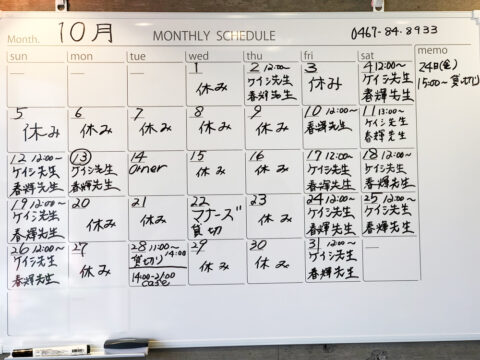 Month. 10月 MONTHLY SCHEDULE 0467-84-8933
sun mon tue wed thu fri sat memo
1 休み
2 12:00~
ケイシ先生
春輝先生
3 休み
4 12:00~
ケイシ先生
春輝先生
24日(金)
15:00~ 貸切
5 休み
6 休み
7 休み
8 休み
9 休み
10 12:00~
春輝先生
11 13:00~
ケイシ先生
春輝先生
12 12:00~
ケイシ先生
春輝先生
13
ケイシ先生
春輝先生
14
15 休み
16 休み
17 12:00~
ケイシ先生
春輝先生
18 12:00~
ケイシ先生
春輝先生
19 12:00~
ケイシ先生
春輝先生
20 休み
21 休み
22
マナーズ
貸切
23 休み
24 12:00~
ケイシ先生
春輝先生
25 12:00~
ケイシ先生
春輝先生
26 12:00~
ケイシ先生
春輝先生
27 休み
28 11:00~
貸切り 14:00
14:00-21:00
29 休み
30 休み
31 12:00~
ケイシ先生
春輝先生